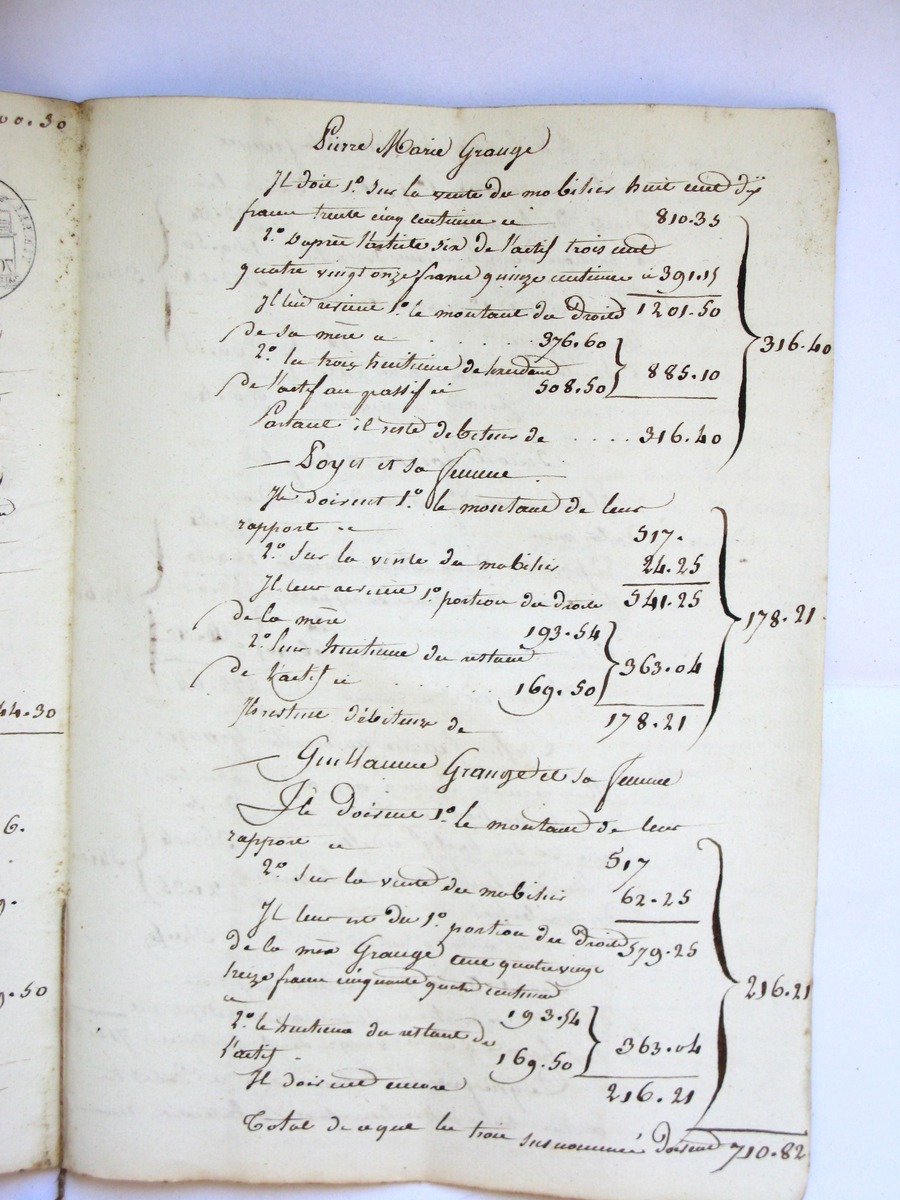 00.30
44.30
6.
9.
9.50
Pierre Marie Grange
Il doit 1.° sur la vente du mobilier huit cent dix
francs trente cinq centimes ci 810.35
2.° D'après l'article six de l'actif trois cent
quatre vingt onze francs quinze centimes ci 391.15
Il lui revient 1.° le montant du Droit 1201.50
de sa mère ci . . . . 376.60
316.40
2.° les trois huitiemes de l'excedent 885.10
de l'actif au passif ci 508.50
Partant il reste debiteur de . . . . 316.40
— Poyet et sa femme
Ils doivent 1.° le montant de leur
rapport ci 517.
2.° sur la vente du mobilier 24.25
Il leur revient 1.° portion du droit 541.25
de la mère 193.54
178.21
2.° leur huitieme du restant 363.04
de l'actif ci . . . . 169.50
Ils restent débiteurs de 178.21
— Guillaume Grange et sa femme
Ils Doivent 1.° le montant de leur
rapport ci 517
2.° sur la vente du mobilier 62.25
Il leur est du 1.° portion du Droit 579.25
de la mère Grange cent quatre vingt
treize francs cinquante quatre centimes
ci 193.54
216.21
2.° le huitieme du restant de 363.04
l'actif . 169.50
Ils doivent encore 216.21
Total de ce que les trois susnommés doivent 710.82